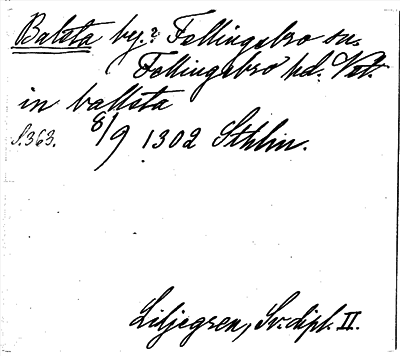 Balsta by? Fellingsbro sn,
Fellingsbro hd. Vstm.
in ballsta
S. 363. 8/9 1302 Sthlm.
Liljegren, Sv. dipl. II.